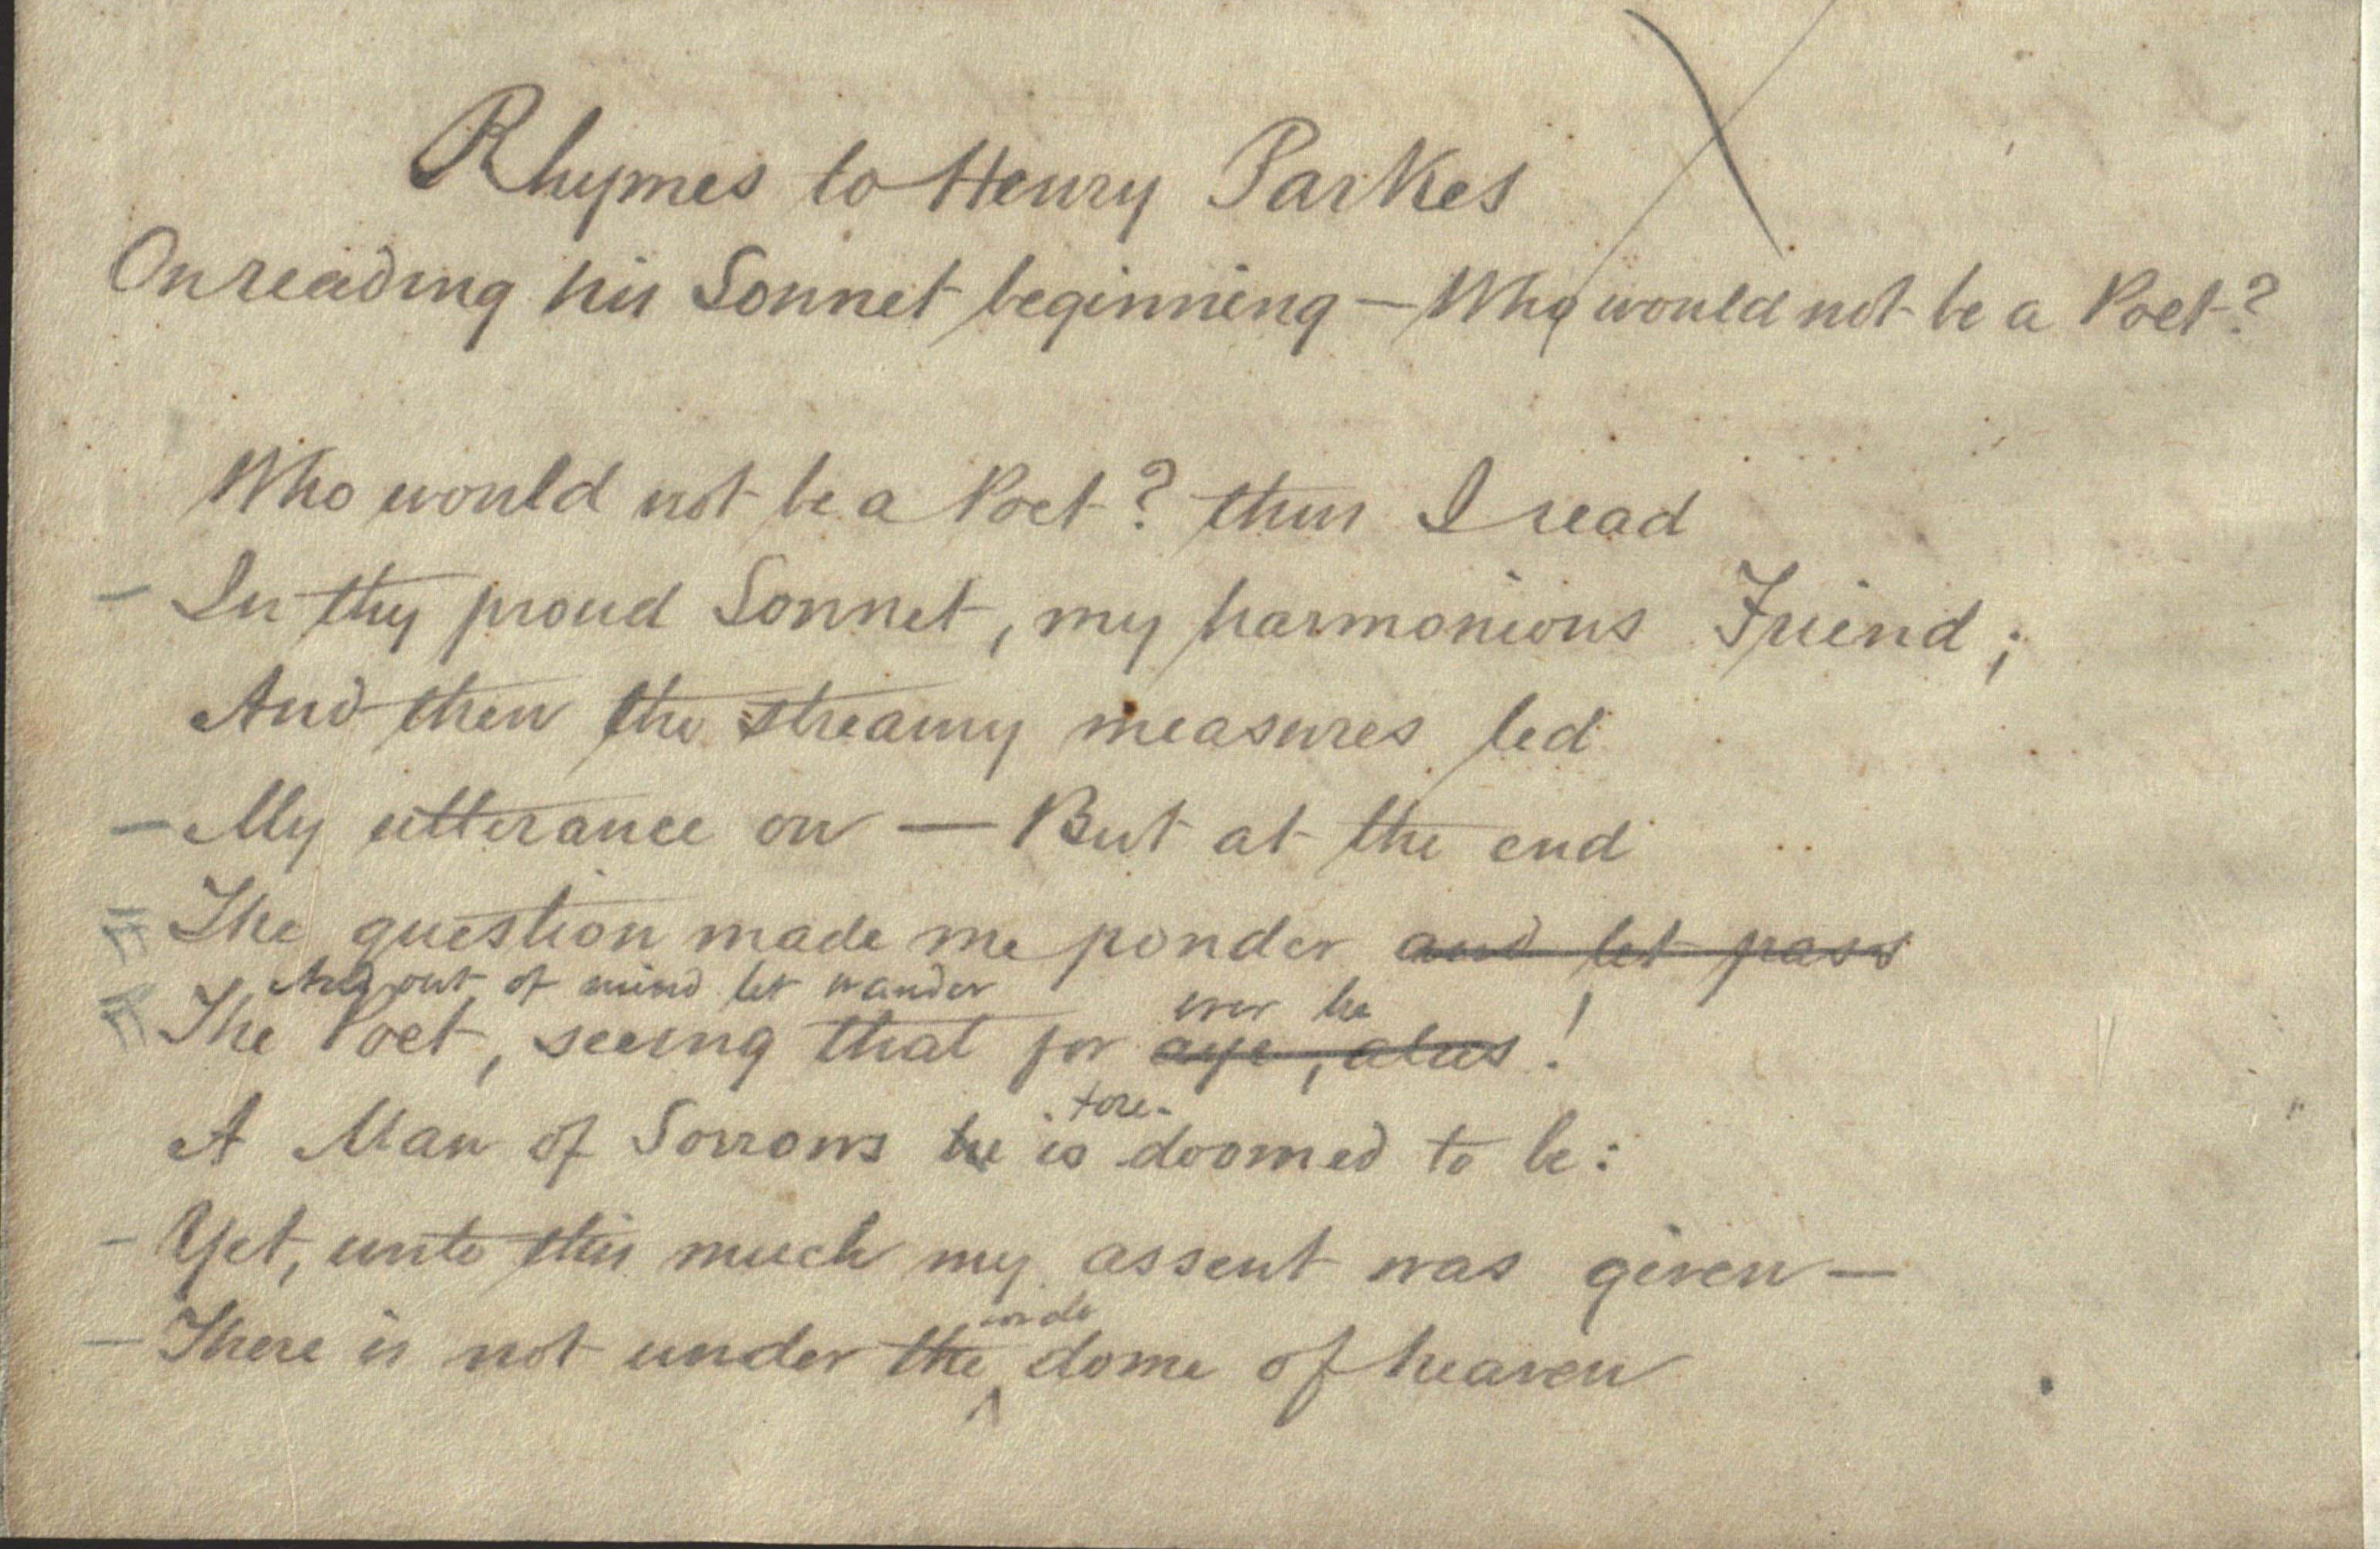 Rhymes to Henry Parkes
On reading his Sonnet beginning — Who would not be a Poet?
Who would not be a Poet? thus I read
– In thy proud Sonnet, my harmonious Friend;
And then the streamy measures led
– My utterance on — But at the end
The question made me ponder and let pass
And out of mind let wander
ever he
The Poet, seeing that for aye, alas!
fore-
A Man of Sorrows he is doomed to be:
– Yet, unto this much my assent was given —
wide
– There is not under the dome of heaven